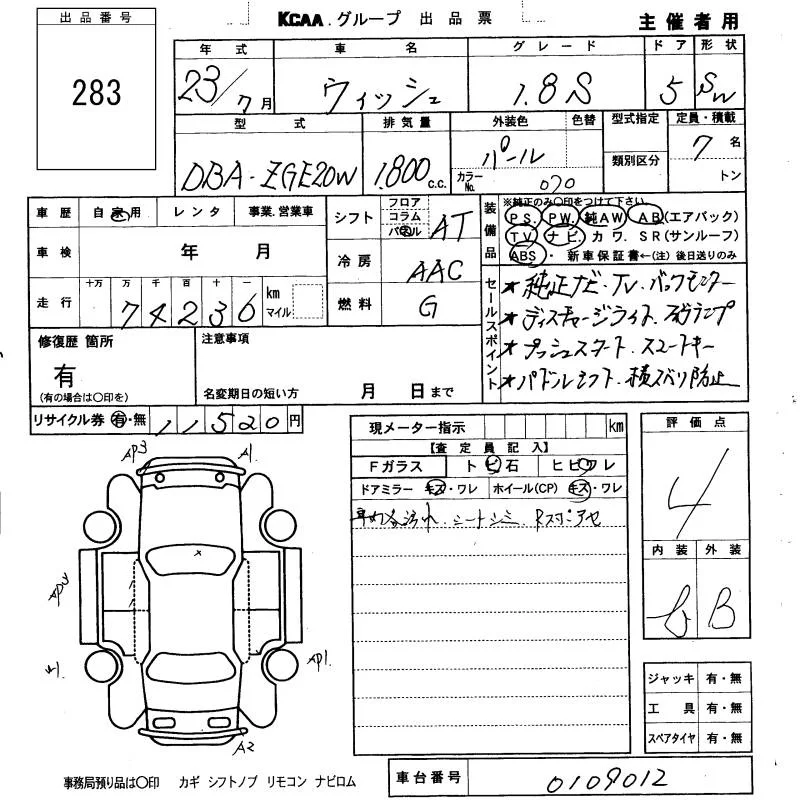 出品番号
283
KCAA.グループ 出品票
主催者用
年式 車名 グレード ドア 形状
23/7月 ウィッシュ 1.8S 5 SW
型式 排気量 外装色 色替 型式指定 定員・積載
DBA-ZGE20W 1,800c.c. パール 7名
カラーNo. 070 類別区分 トン
車歴 自家用 レンタ 事業.営業車
車検 年 月
走行 十万 万 千 百 十 一
74236 km マイル
シフト フロア コラム パネル AT
冷房 AAC
燃料 G
装備品 ※純正のみ〇印をつけて下さい。
PS. PW. 純AW AB(エアバック)
TV ナビ. カワ. SR(サンルーフ)
ABS・新車保証書←(注)後日送りのみ
セールスポイント
★純正ナビ・TV.バックモニター
★ディスチャージライト.フォグランプ
★プッシュスタート.スマートキー
★パドルシフト.横スベリ防止
修復歴 箇所
有
(有の場合は〇印を)
注意事項
名変期日の短い方 月 日まで
リサイクル券 有・無 11520円
現メーター指示 km
【査定員記入】
Fガラス トビ石 ヒビワレ
ドアミラー キズ・ワレ ホイール(CP) キズ・ワレ
シートシミ
評価点
4
内装 外装
B
AP3 A1
W1 AP1
A2
ジャッキ 有・無
工具 有・無
スペアタイヤ 有・無
事務局預り品は〇印 カギ シフトノブ リモコン ナビロム
車台番号 0109012